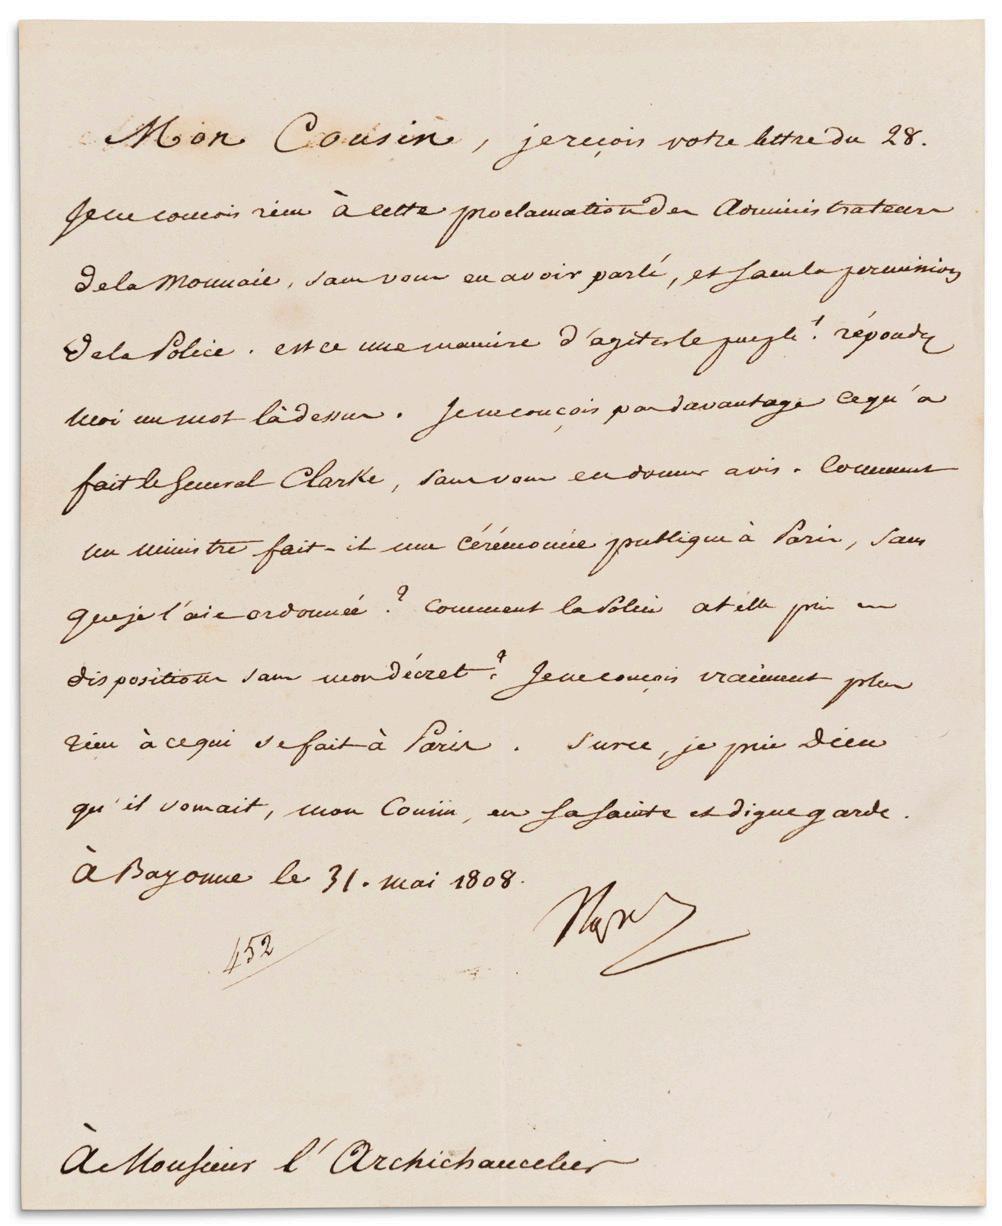 Mon Cousin, je reçois votre lettre du 28.
Je ne conçois rien à cette proclamation des Administrateurs
de la Monnaie, sans vous en avoir parlé, et sans la permission
de la Police. est ce une manière d'agiter le peuple! répondez
moi un mot là dessus. Je ne conçois pas davantage ce qu'a
fait le General Clarke, sans vous en donner avis. Comment
un ministre fait-il une cérémonie publique à Paris, sans
que je l'aie ordonnée? Comment la Police at'elle pris ces
dispositions sans mon décret? Je ne conçois vraiment plus
rien à ce qui se fait à Paris. Surce, je prie Dieu
qu'il vous ait, mon Cousin, en Sa Sainte et digne garde.
À Bayonne le 31. mai 1808.
Nap
452
À Monsieur l'Archichancelier